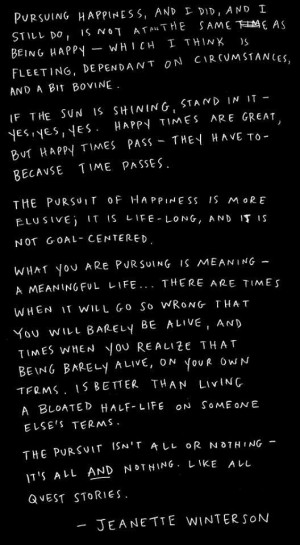 PURSUING HAPPINESS, AND I DID, AND I
STILL DO, IS NOT AT ALL THE SAME AS
BEING HAPPY — WHICH I THINK IS
FLEETING, DEPENDANT ON CIRCUMSTANCES,
AND A BIT BOVINE.
IF THE SUN IS SHINING, STAND IN IT —
YES, YES, YES. HAPPY TIMES ARE GREAT,
BUT HAPPY TIMES PASS — THEY HAVE TO -
BECAUSE TIME PASSES.
THE PURSUIT OF HAPPINESS IS MORE
ELUSIVE; IT IS LIFE-LONG, AND IT IS
NOT GOAL-CENTERED.
WHAT YOU ARE PURSUING IS MEANING —
A MEANINGFUL LIFE... THERE ARE TIMES
WHEN IT WILL GO SO WRONG THAT
YOU WILL BARELY BE ALIVE, AND
TIMES WHEN YOU REALIZE THAT
BEING BARELY ALIVE, ON YOUR OWN
TERMS. IS BETTER THAN LIVING
A BLOATED HALF-LIFE ON SOMEONE
ELSE'S TERMS.
THE PURSUIT ISN'T ALL OR NOTHING —
IT'S ALL AND NOTHING. LIKE ALL
QUEST STORIES.
— JEANETTE WINTERSON